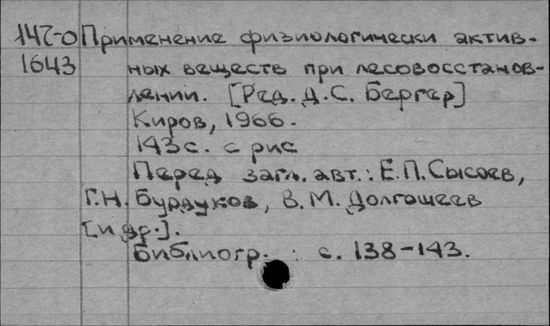 147-0 Применение физиологически актив-
1643 ных веществ при лесовосстанов-
лении. [Ред. Д.С. Бергер]
Киров, 1966.
143 с. с рис
Перед загл. авт.: Е.П. Сысоев,
Г.Н. Бурдуков, В.М. Долгошеев
[и др.].
Библиогр. : с. 138-143.